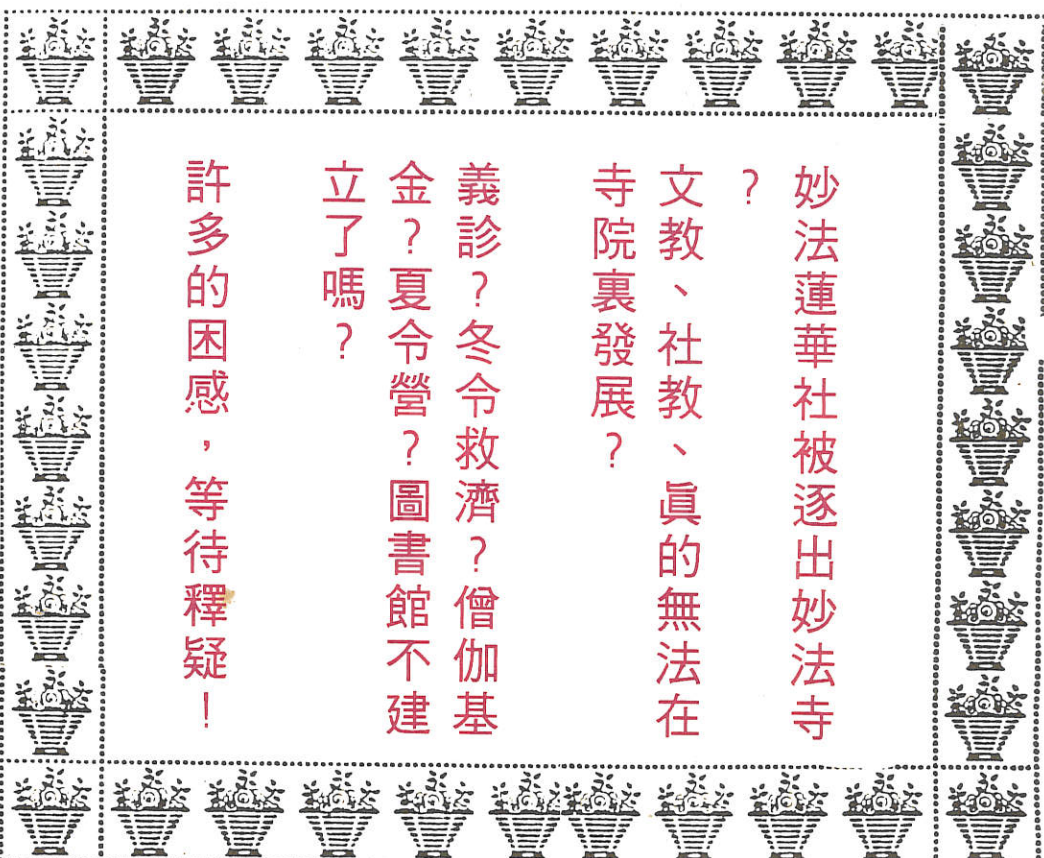 妙法蓮華社被逐出妙法寺
?
文教、社教、眞的無法在
寺院裏發展?
義診?冬令救濟?僧伽基
金?夏令營?圖書館不建
立了嗎?
許多的困感,等待釋疑!